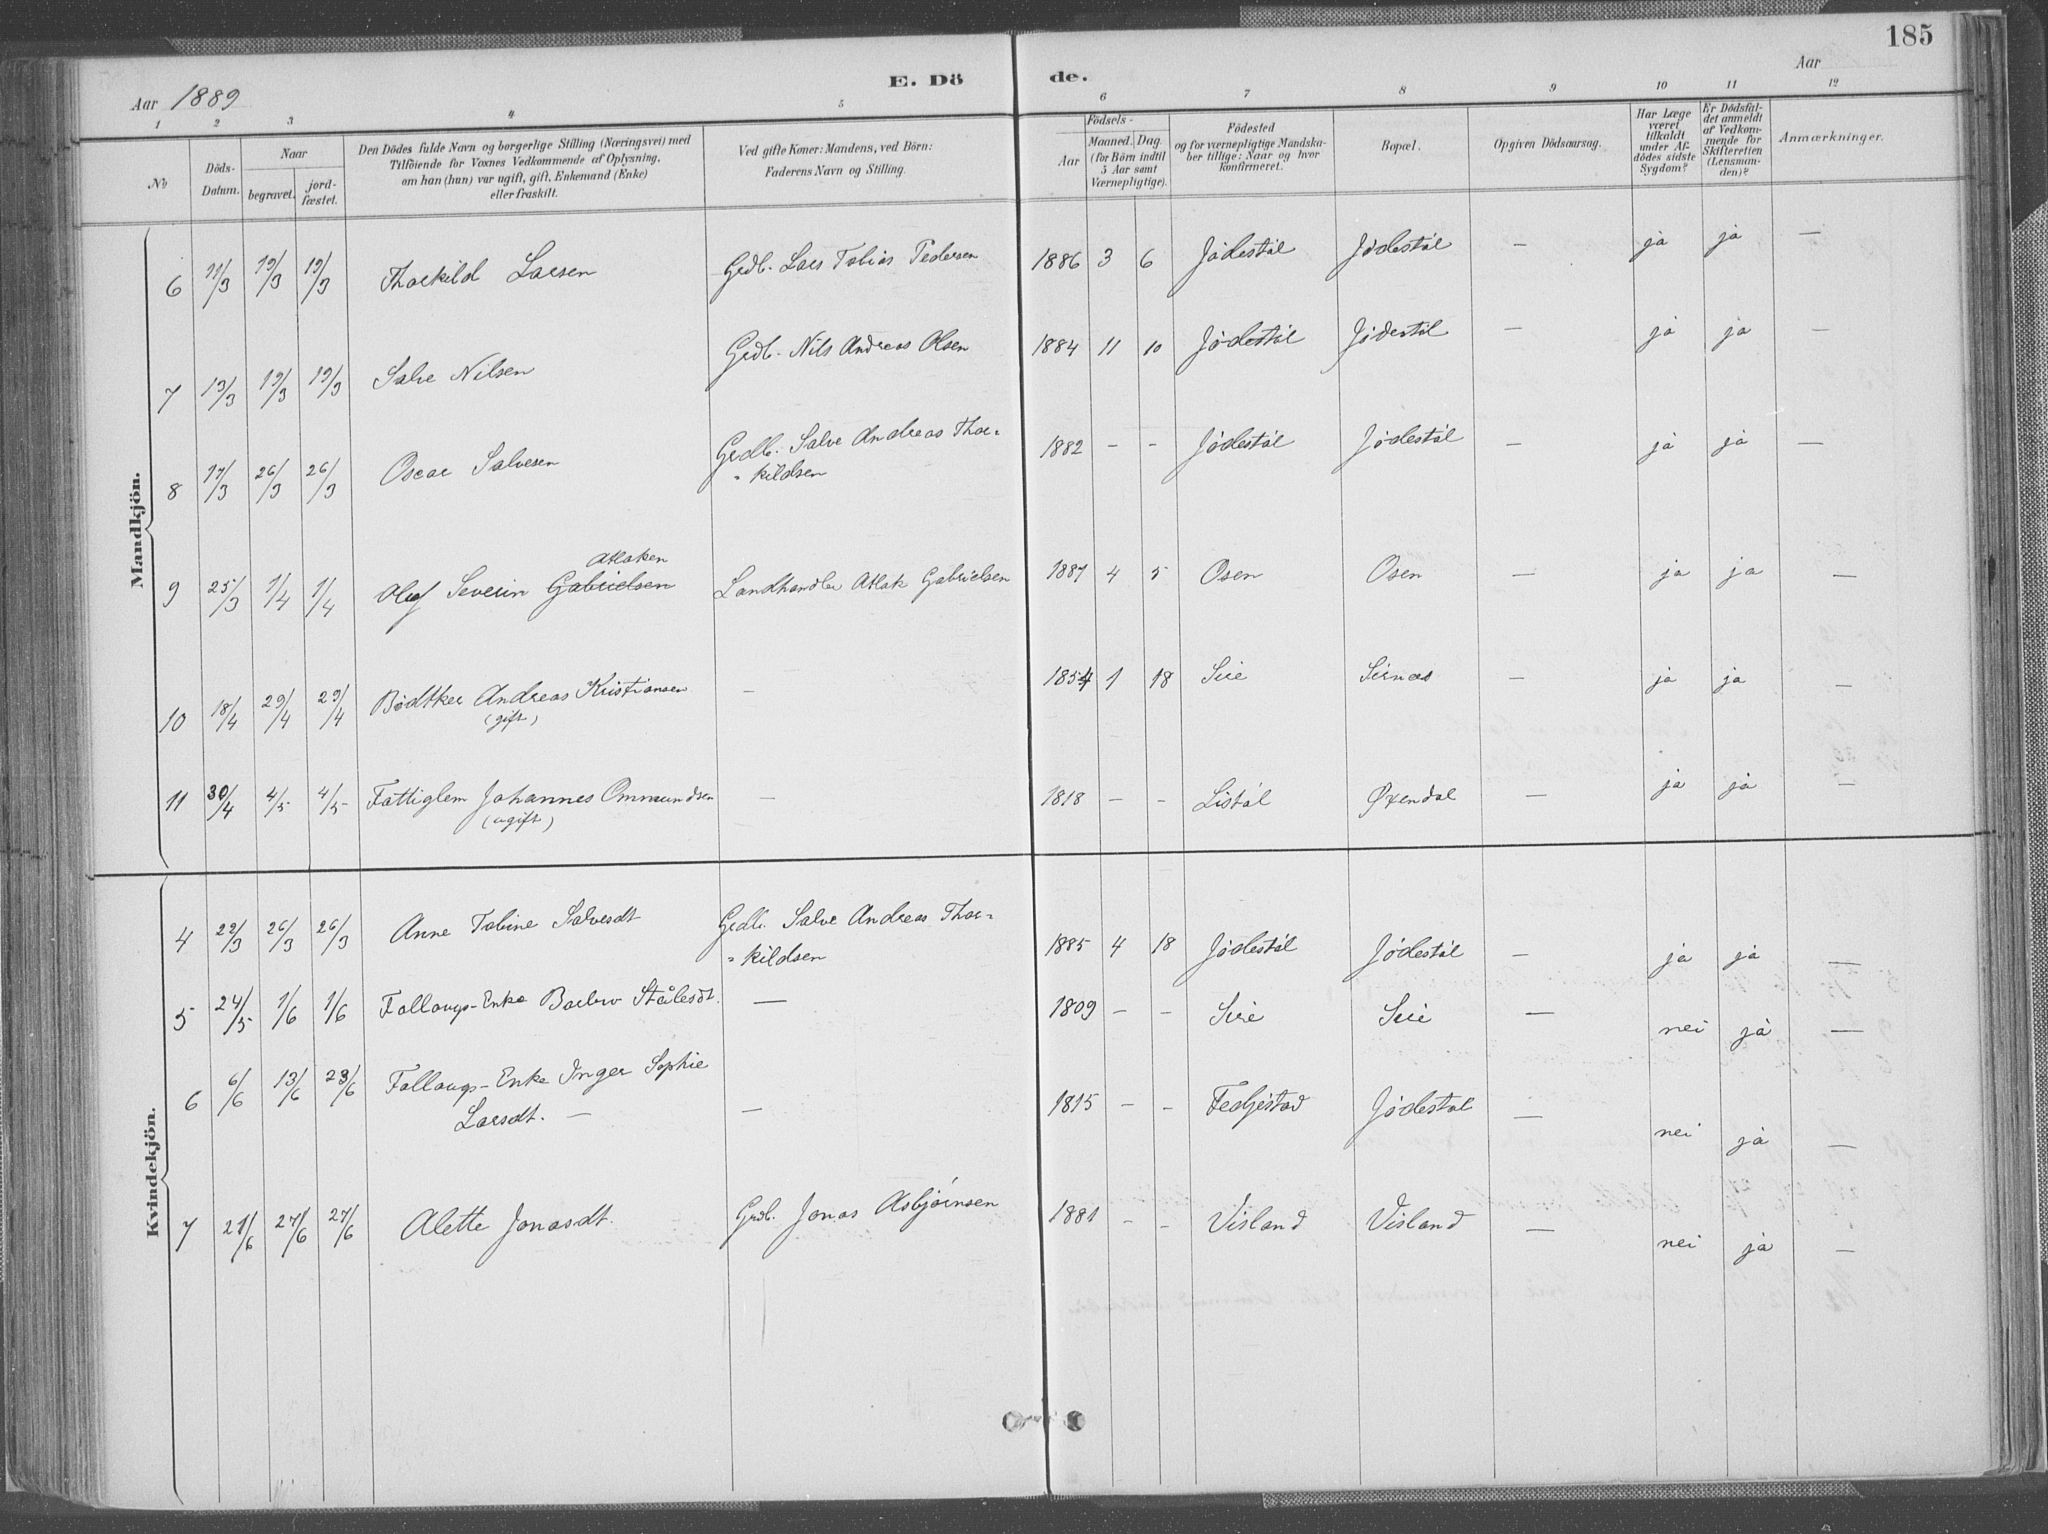 185
E. Dö de.
Aar 1889
Aar
1 2 3 4 5 6 7 8 9 10 11 12
No
Döds-Datum.
Naar
begravet.
jord-fæstet.
Den Dödes fulde Navn og borgerlige Stilling (Næringsvei) med
Tilföiende for Voxnes Vedkommende af Oplysning,
om han (hun) var ugift, gift, Enkemand (Enke)
eller fraskilt.
Ved gifte Koner: Mandens, ved Börn:
Faderens Navn og Stilling.
Födsels-
Aar
Maaned. Dag.
(for Börn indtil
5 Aar samt
Værnepligtige).
Födested
og for værnepligtige Mandska-
ber tillige: Naar og hvor
konfirmeret.
Bopæl.
Opgiven Dödsaarsag.
Har Læge
været
tilkaldt
under Af-
dödes sidste
Sygdom?
Er Dödsfal-
det anmeldt
af Vedkom-
mende for
Skifteretten
(Lensman-
den)?
Anmærkninger.
Mandkjön.
6 11/3 19/3 19/3 Thorkild Larsen Grdb. Lars Tobias Pedersen 1886 3 6 Jødestøl Jødestøl — ja ja —
7 13/3 19/3 19/3 Salve Nilsen Grdb. Nils Andreas Olsen 1884 11 10 Jødestøl Jødestøl — ja ja —
8 17/3 26/3 26/3 Oscar Salvesen Grdb. Salve Andreas Thor-
kildsen 1882 — — Jødestøl Jødestøl — ja ja —
Atlaksen
9 25/3 1/4 1/4 Olaf Severin Gabrielsen Landhandler Atlak Gabrielsen 1887 4 5 Osen Osen — ja ja —
10 18/4 29/4 29/4 Bødtker Andreas Kristiansen — 1854 1 18 Sire Sirnes ja ja —
(gift)
11 30/4 4/5 4/5 Fattiglem Johannes Ommundsen — 1818 — — Listøl Øxendal — ja ja —
(ugift)
Kvindekjön.
4 22/3 26/3 26/3 Anne Tobine Salvesdt Grdb. Salve Andreas Thor-
kildsen 1885 4 18 Jødestøl Jødestøl — ja ja —
5 24/5 1/6 1/6 Follaugs-Enke Barbro Stålesdt. — 1809 — — Sire Sire — nei ja —
6 6/6 13/6 23/6 Follaugs-Enke Inger Sophie
Larsdt. — — 1815 — — Fedjestad Jødestøl — nei ja —
7 21/6 27/6 27/6 Alette Jonasdt. Grdb. Jonas Asbjørnsen 1881 — — Visland Visland — nei ja —